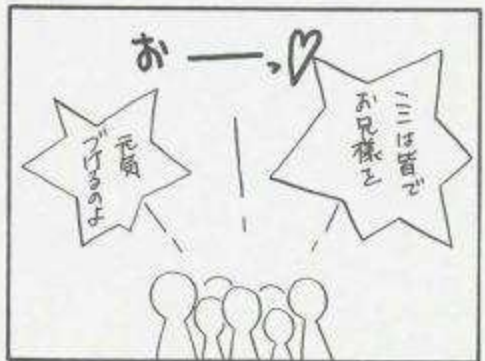 おーーっ♡
ここは皆で
お兄様を
元員
づけるのよ